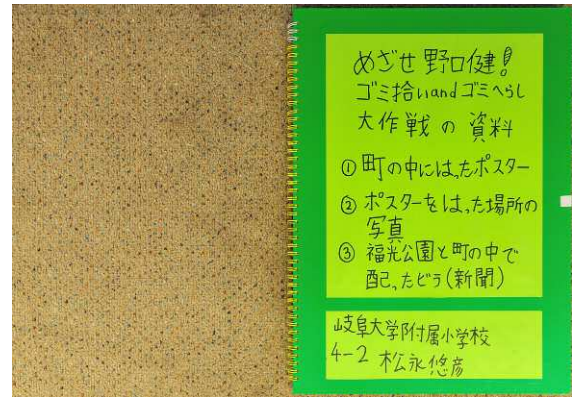 めざせ野口健!
ゴミ拾いandゴミへらし
大作戦の資料
①町の中にはったポスター
②ポスターをはった場所の
写真
③福光公園と町の中で
配ったビラ(新聞)
岐阜大学附属小学校
4-2 松永悠彦